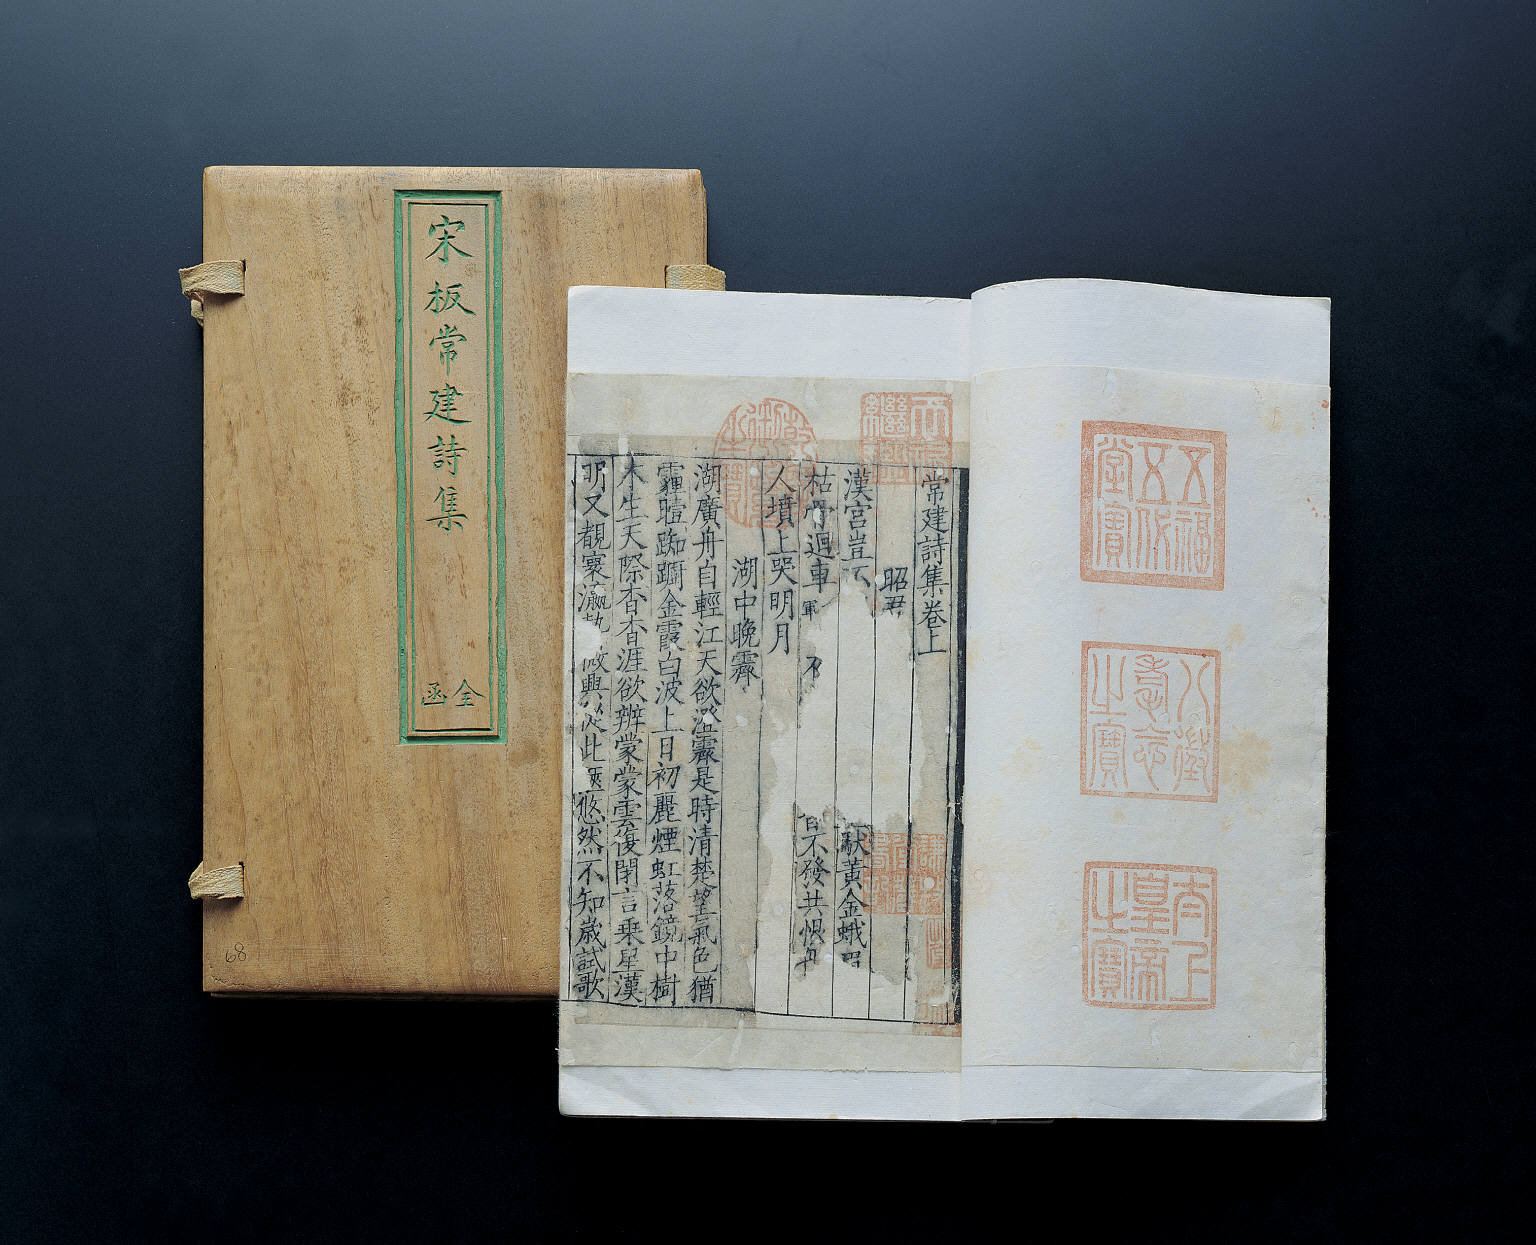 宋板常建詩集
全函
五福五代堂寶
八徵耄念之寶
太上皇帝之寶
天祿繼鑑
常建詩集卷上
昭君
漢宮豈不
馱黃金蛾眉
枯骨迴車
軍
不
日不發共恨丹
人墳上哭明月
湖中晚霽
湖廣舟自輕江天欲澄霽是時清楚望氣色猶
霾曀踟躕金霞白波上日初麗煙虹落鏡中樹
木生天際杳杳涯欲辨蒙蒙雲復閉言乘星漢
明又覩寰瀛勢
興從此
悠然不知歲試歌
68